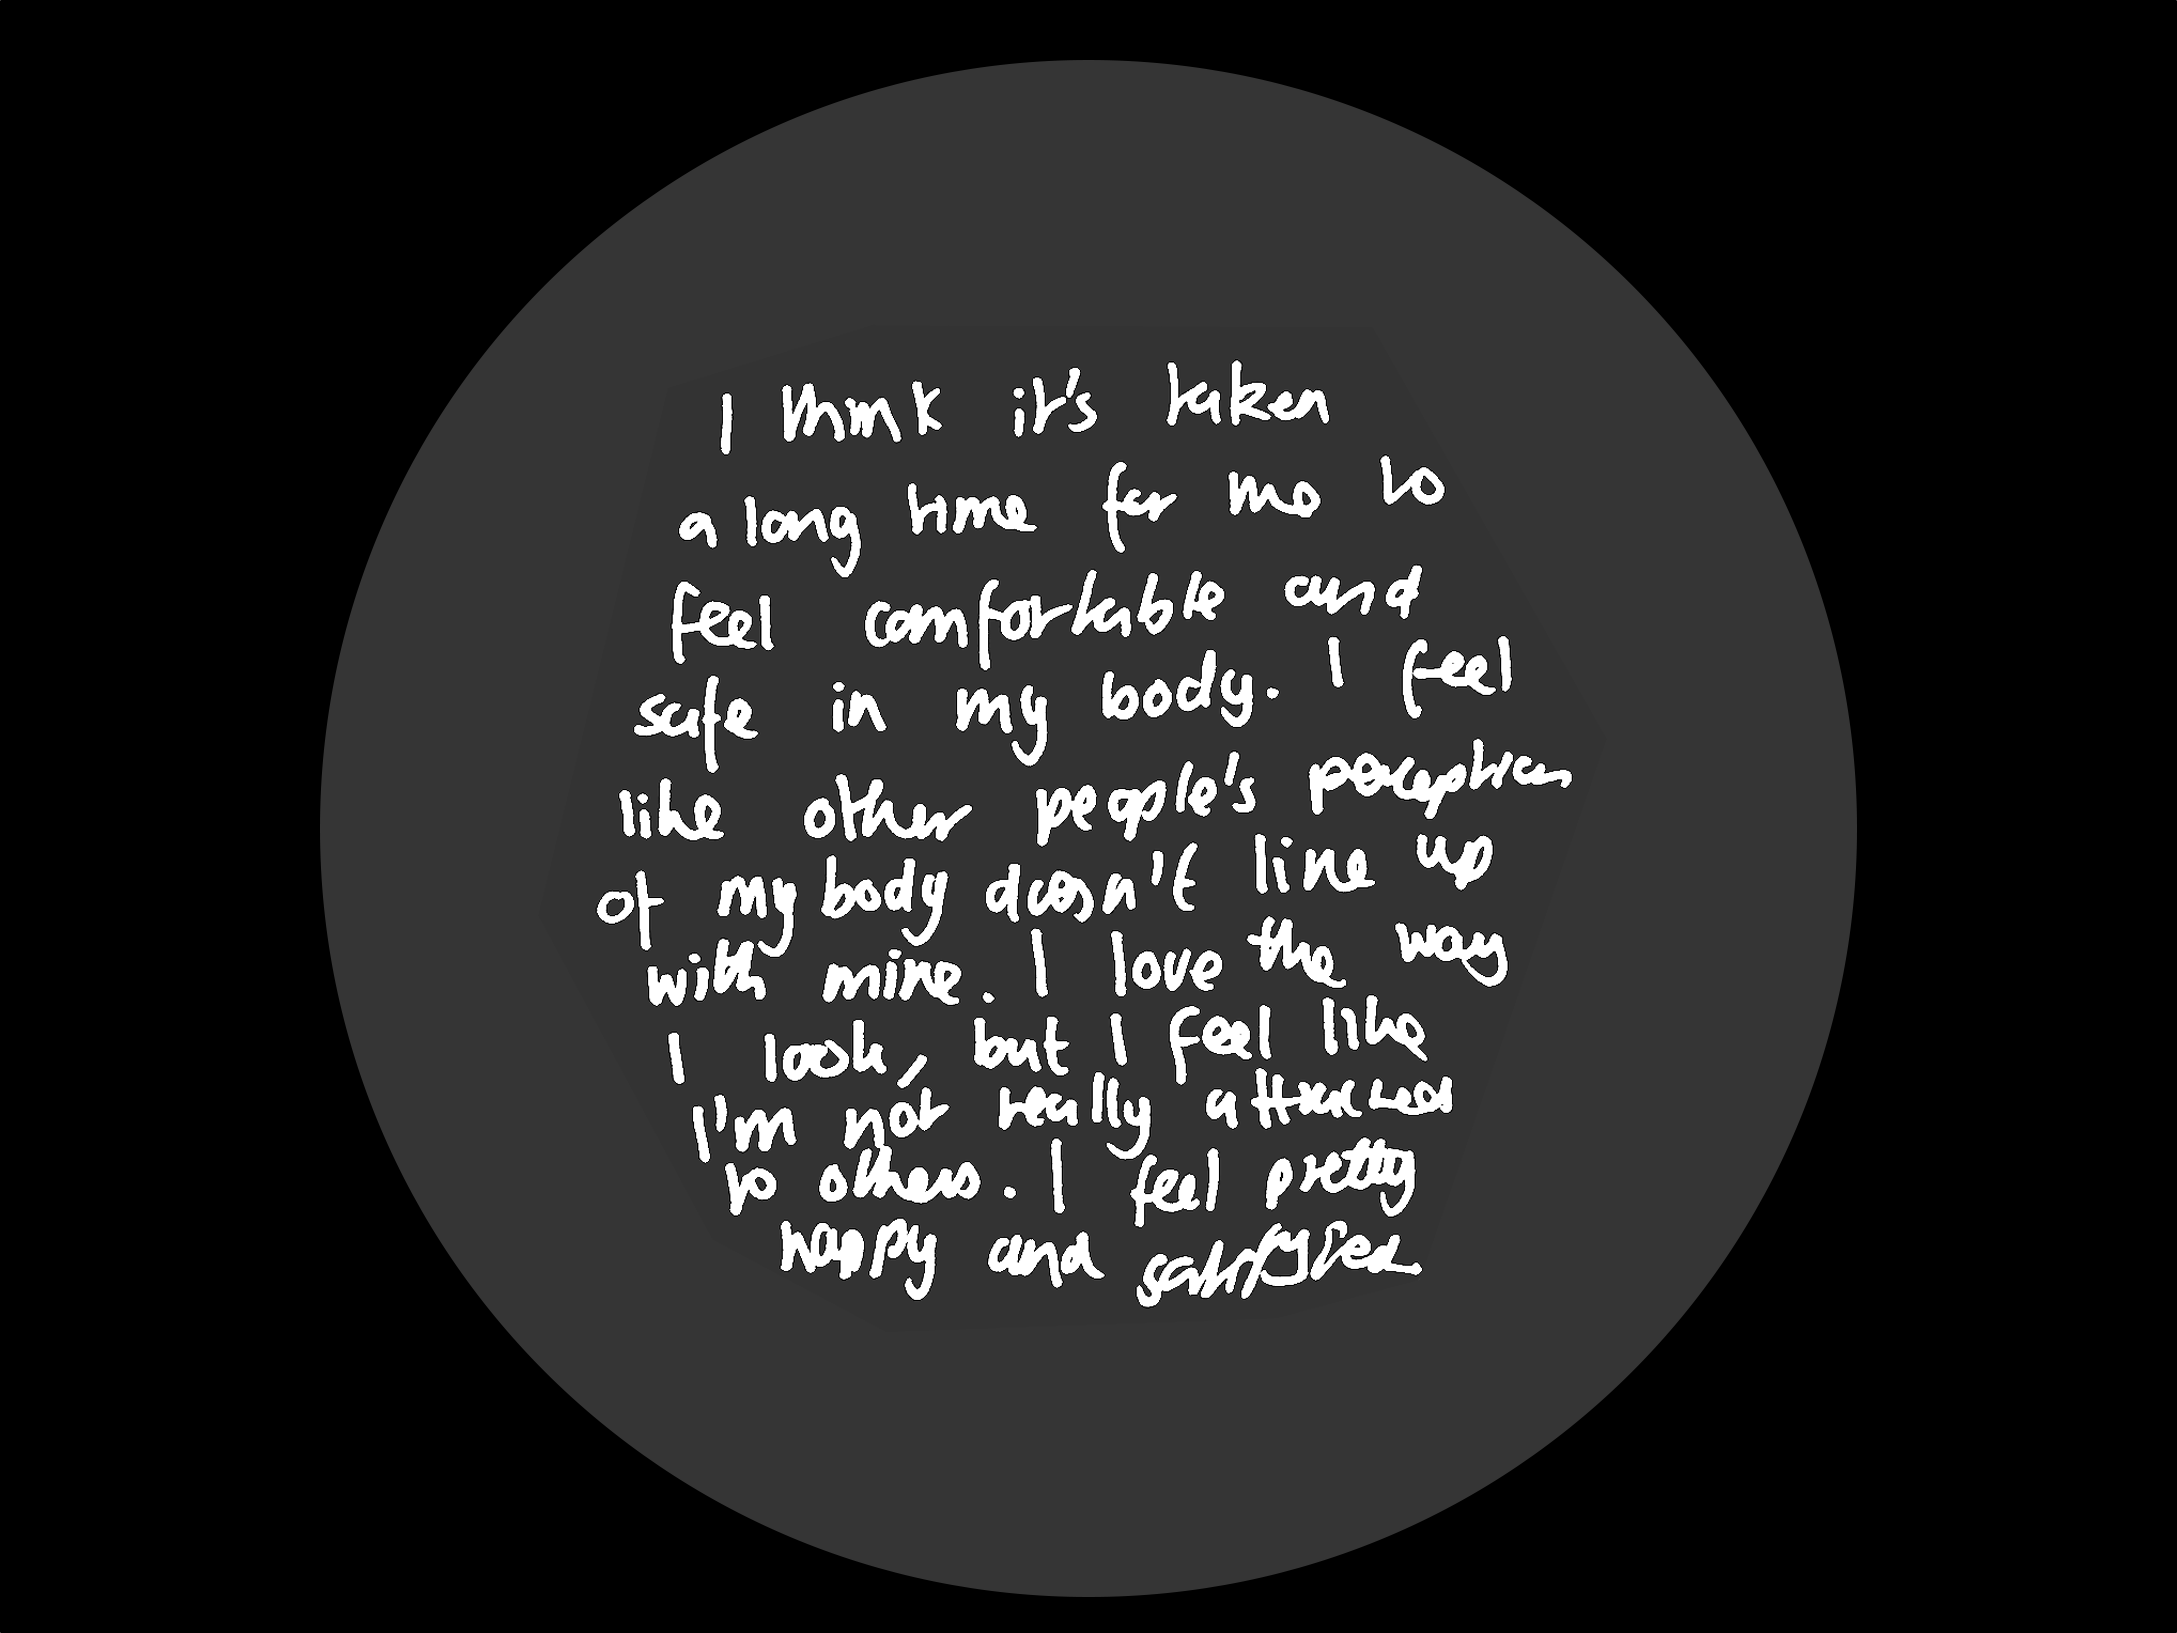 I think it's taken
a long time for me to
feel comfortable and
safe in my body. I feel
like other people's perception
of my body doesn't line up
with mine. I love the way
I look, but I feel like
I'm not really attracted
to others. I feel pretty
happy and satisfied